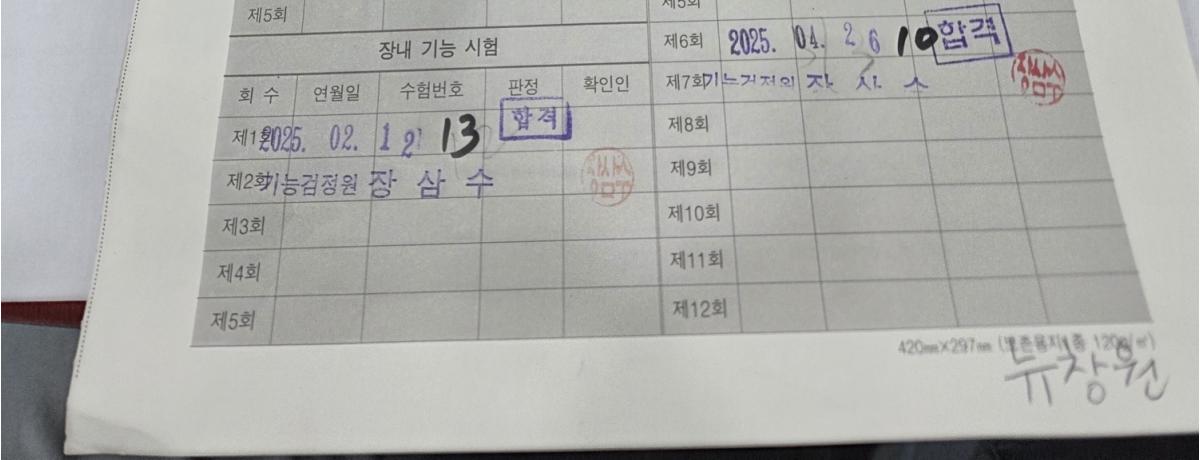 제5회
장내 기능 시험
회 수 연월일 수험번호 판정 확인인
제1회 2025. 02. 12 13 합격
제2회 기능검정원 장 삼 수
제3회
제4회
제5회
제5회
제6회 2025. 04. 26 10 합격
제7회 기능검정원 장 삼 수
제8회
제9회
제10회
제11회
제12회
420㎜×297㎜ (보존용지1종 120g/㎡)
뉴창원